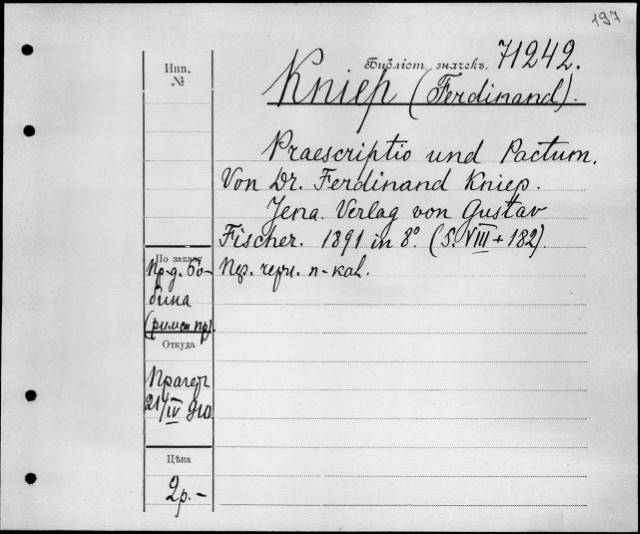 197
Библіот. значекъ. 71242.
Инв.
№
Kniep (Ferdinand).
Praescriptio und Pactum.
Von Dr. Ferdinand Kniep.
Jena. Verlag von Gustav
Fischer. 1891 in 8°. (S. VIII + 182).
По заказу
Пр-д. Бо-
бина
(римск пр).
Пер. черн. п-кал.
Откуда
Прагеръ
21/IV 910.
Цѣна
2р.-